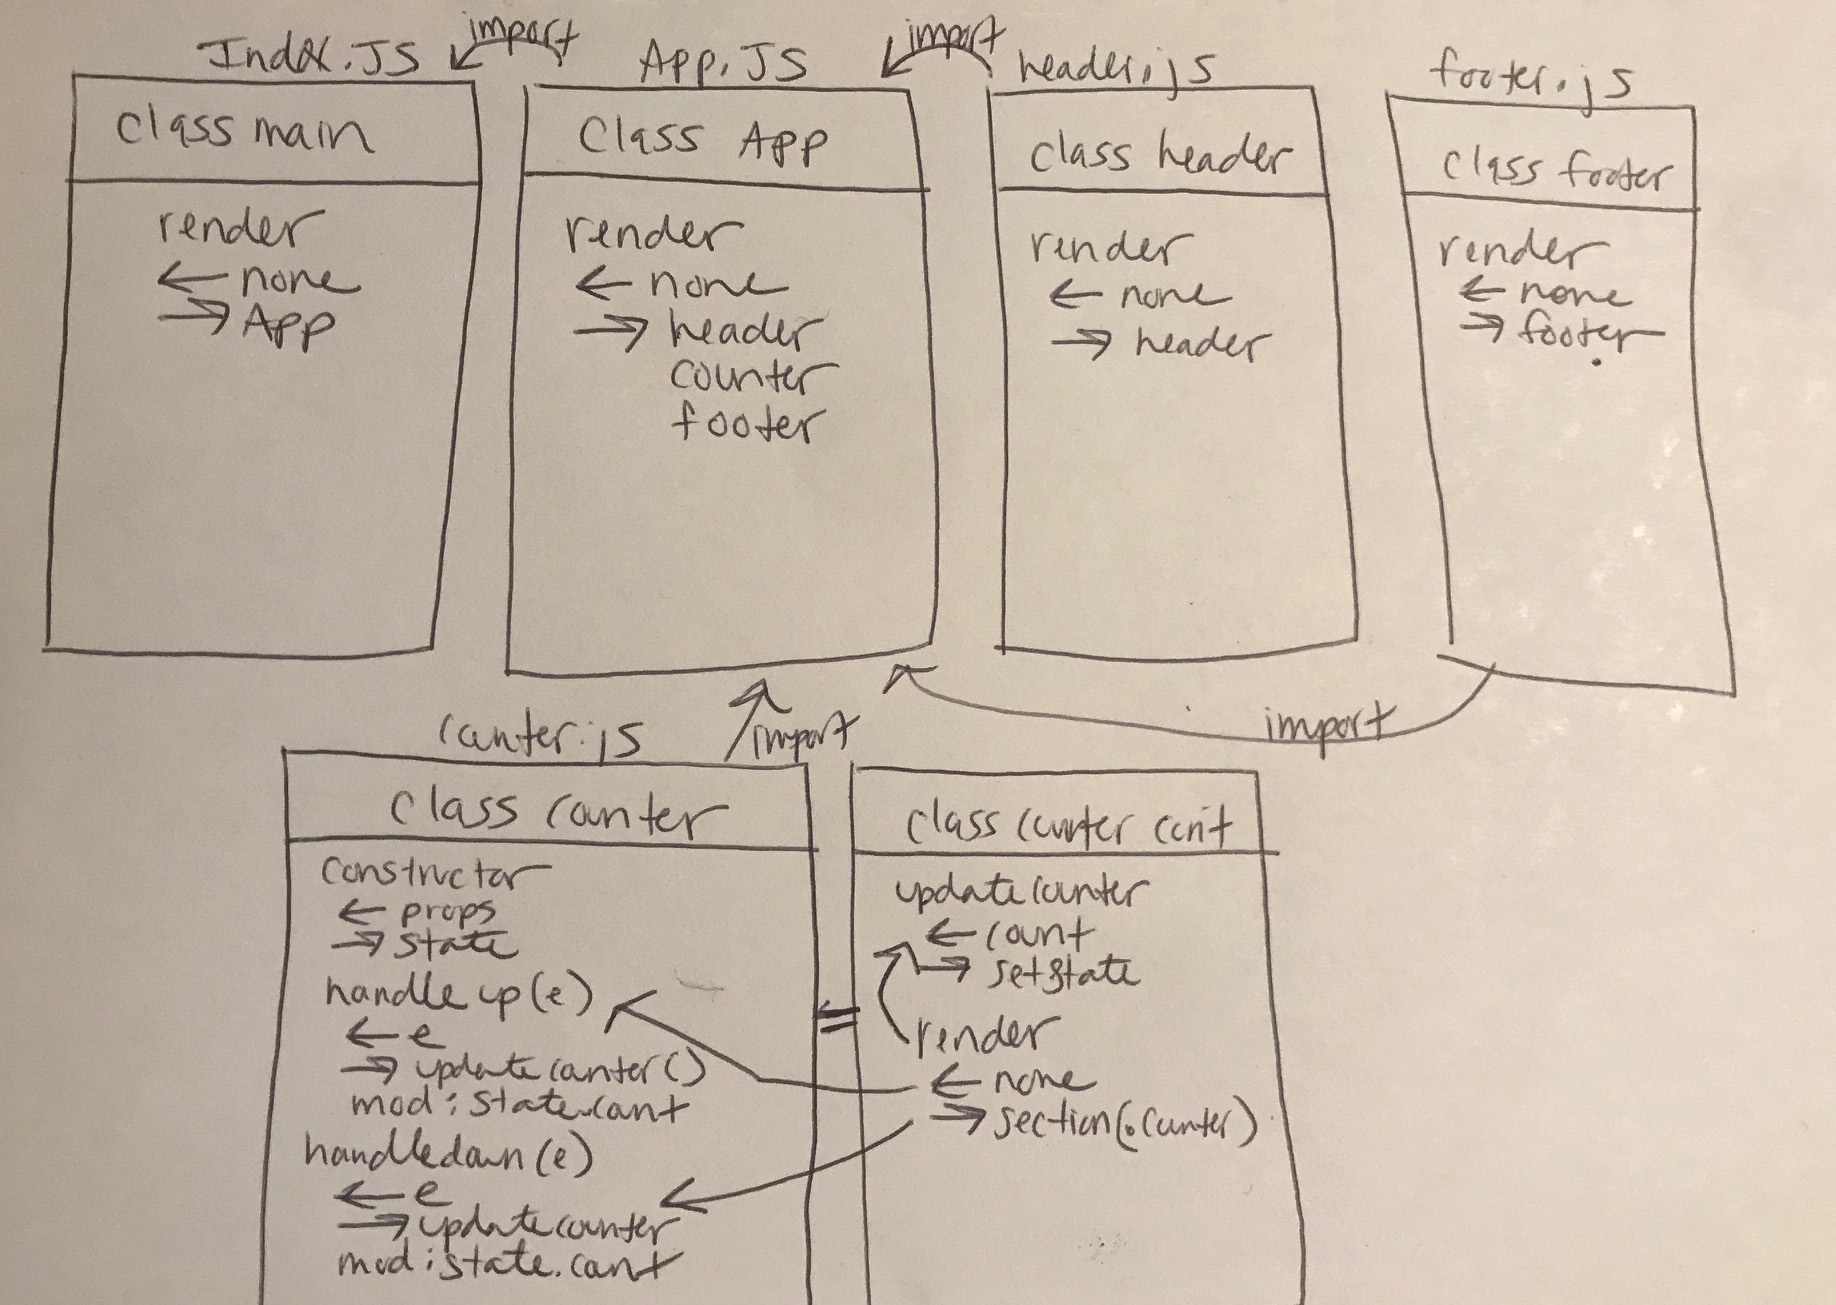 Index.JS
import
App.JS
import
header.js
footer.js
class main
render
← none
→ App
Class App
render
← none
→ header
counter
footer
class header
render
← none
→ header
class footer
render
← none
→ footer
import
import
counter.js
class counter
constructor
← props
→ state
handle up(e)
← e
→ update counter()
mod: state.count
handledown(e)
← e
→ update counter
mod: state.count
class counter cont
update counter
← count
→ setstate
render
← none
→ section(.counter)